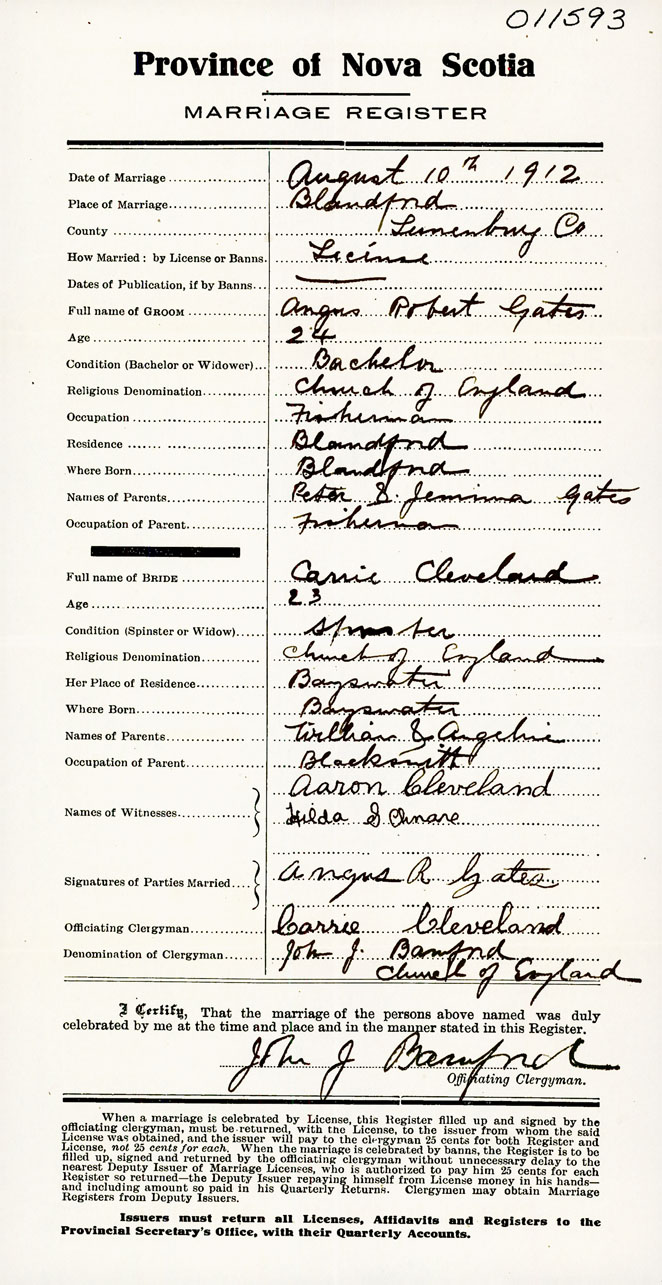 011593
Province of Nova Scotia
MARRIAGE REGISTER
Date of Marriage August 10th 1912
Place of Marriage Blandford
County Lunenburg Co
How Married: by License or Banns. License
Dates of Publication, if by Banns
Full name of GROOM Angus Robert Gates
Age 24
Condition (Bachelor or Widower) Bachelor
Religious Denomination Church of England
Occupation Fisherman
Residence Blandford
Where Born Blandford
Names of Parents Peter & Jemima Gates
Occupation of Parent Fisherman
Full name of BRIDE Carrie Cleveland
Age 23
Condition (Spinster or Widow) Spinster
Religious Denomination Church of England
Her Place of Residence Bayswater
Where Born Bayswater
Names of Parents William & Angeline
Occupation of Parent Blacksmith
Aaron Cleveland
Names of Witnesses Hilda
Signatures of Parties Married Angus R Gates
Officiating Clergyman Carrie Cleveland
Denomination of Clergyman John J. Bamford
Church of England
I Certify, That the marriage of the persons above named was duly
celebrated by me at the time and place and in the manner stated in this Register.
John J Bamford
Officiating Clergyman.
When a marriage is celebrated by License, this Register filled up and signed by the
officiating clergyman, must be returned, with the License, to the issuer from whom the said
License was obtained, and the issuer will pay to the clergyman 25 cents for both Register and
License, not 25 cents for each. When the marriage is celebrated by banns, the Register is to be
filled up, signed and returned by the officiating clergyman without unnecessary delay to the
nearest Deputy Issuer of Marriage Licenses, who is authorized to pay him 25 cents for each
Register so returned—the Deputy Issuer repaying himself from License money in his hands—
and including amount so paid in his Quarterly Returns. Clergymen may obtain Marriage
Registers from Deputy Issuers.
Issuers must return all Licenses, Affidavits and Registers to the
Provincial Secretary's Office, with their Quarterly Accounts.